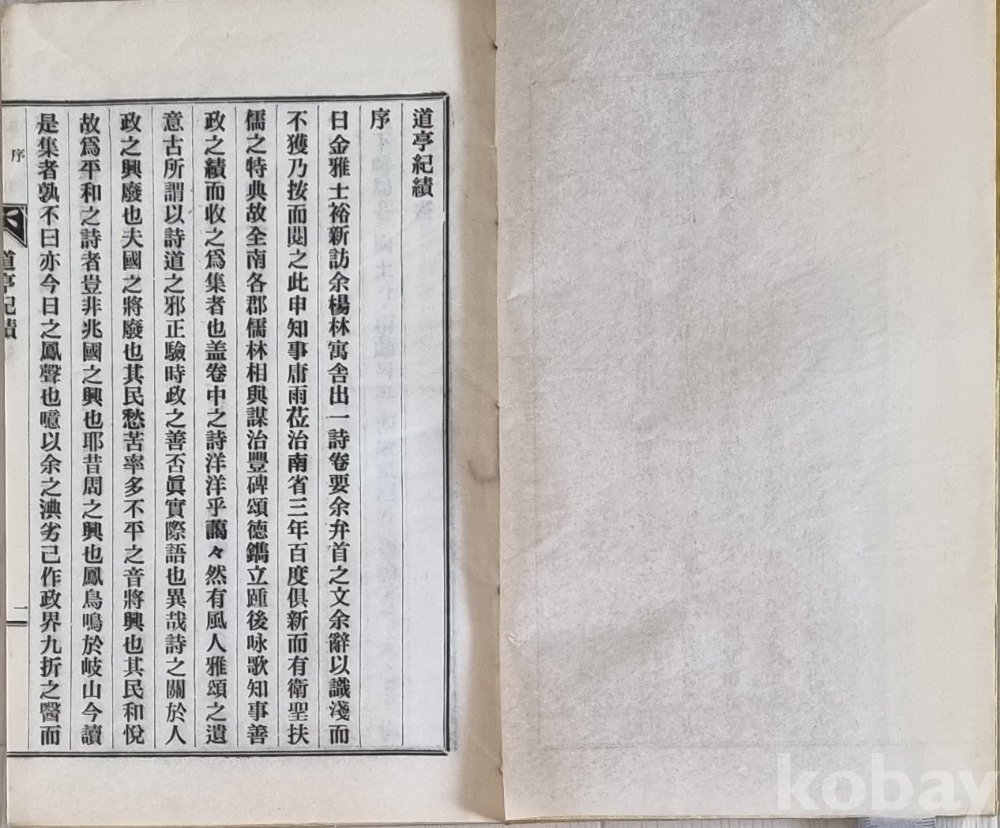 道亭紀績
序
日金雅士裕新訪余楊林寓舍出一詩卷要余弁首之文余辭以識淺而
不獲乃按而閱之此申知事庸雨莅治南省三年百度俱新而有衛聖扶
儒之特典故全南各郡儒林相與謀治豐碑頌德鐫立踵後咏歌知事善
政之績而收之爲集者也盖卷中之詩洋洋乎藹々然有風人雅頌之遺
意古所謂以詩道之邪正驗時政之善否眞實際語也異哉詩之關於人
政之興廢也夫國之將廢也其民愁苦率多不平之音將興也其民和悅
故爲平和之詩者豈非兆國之興也耶昔周之興也鳳鳥鳴於岐山今讀
是集者孰不曰亦今日之鳳聲也噫以余之淟劣己作政界九折之醫而
序
道亭紀績
一
kobay